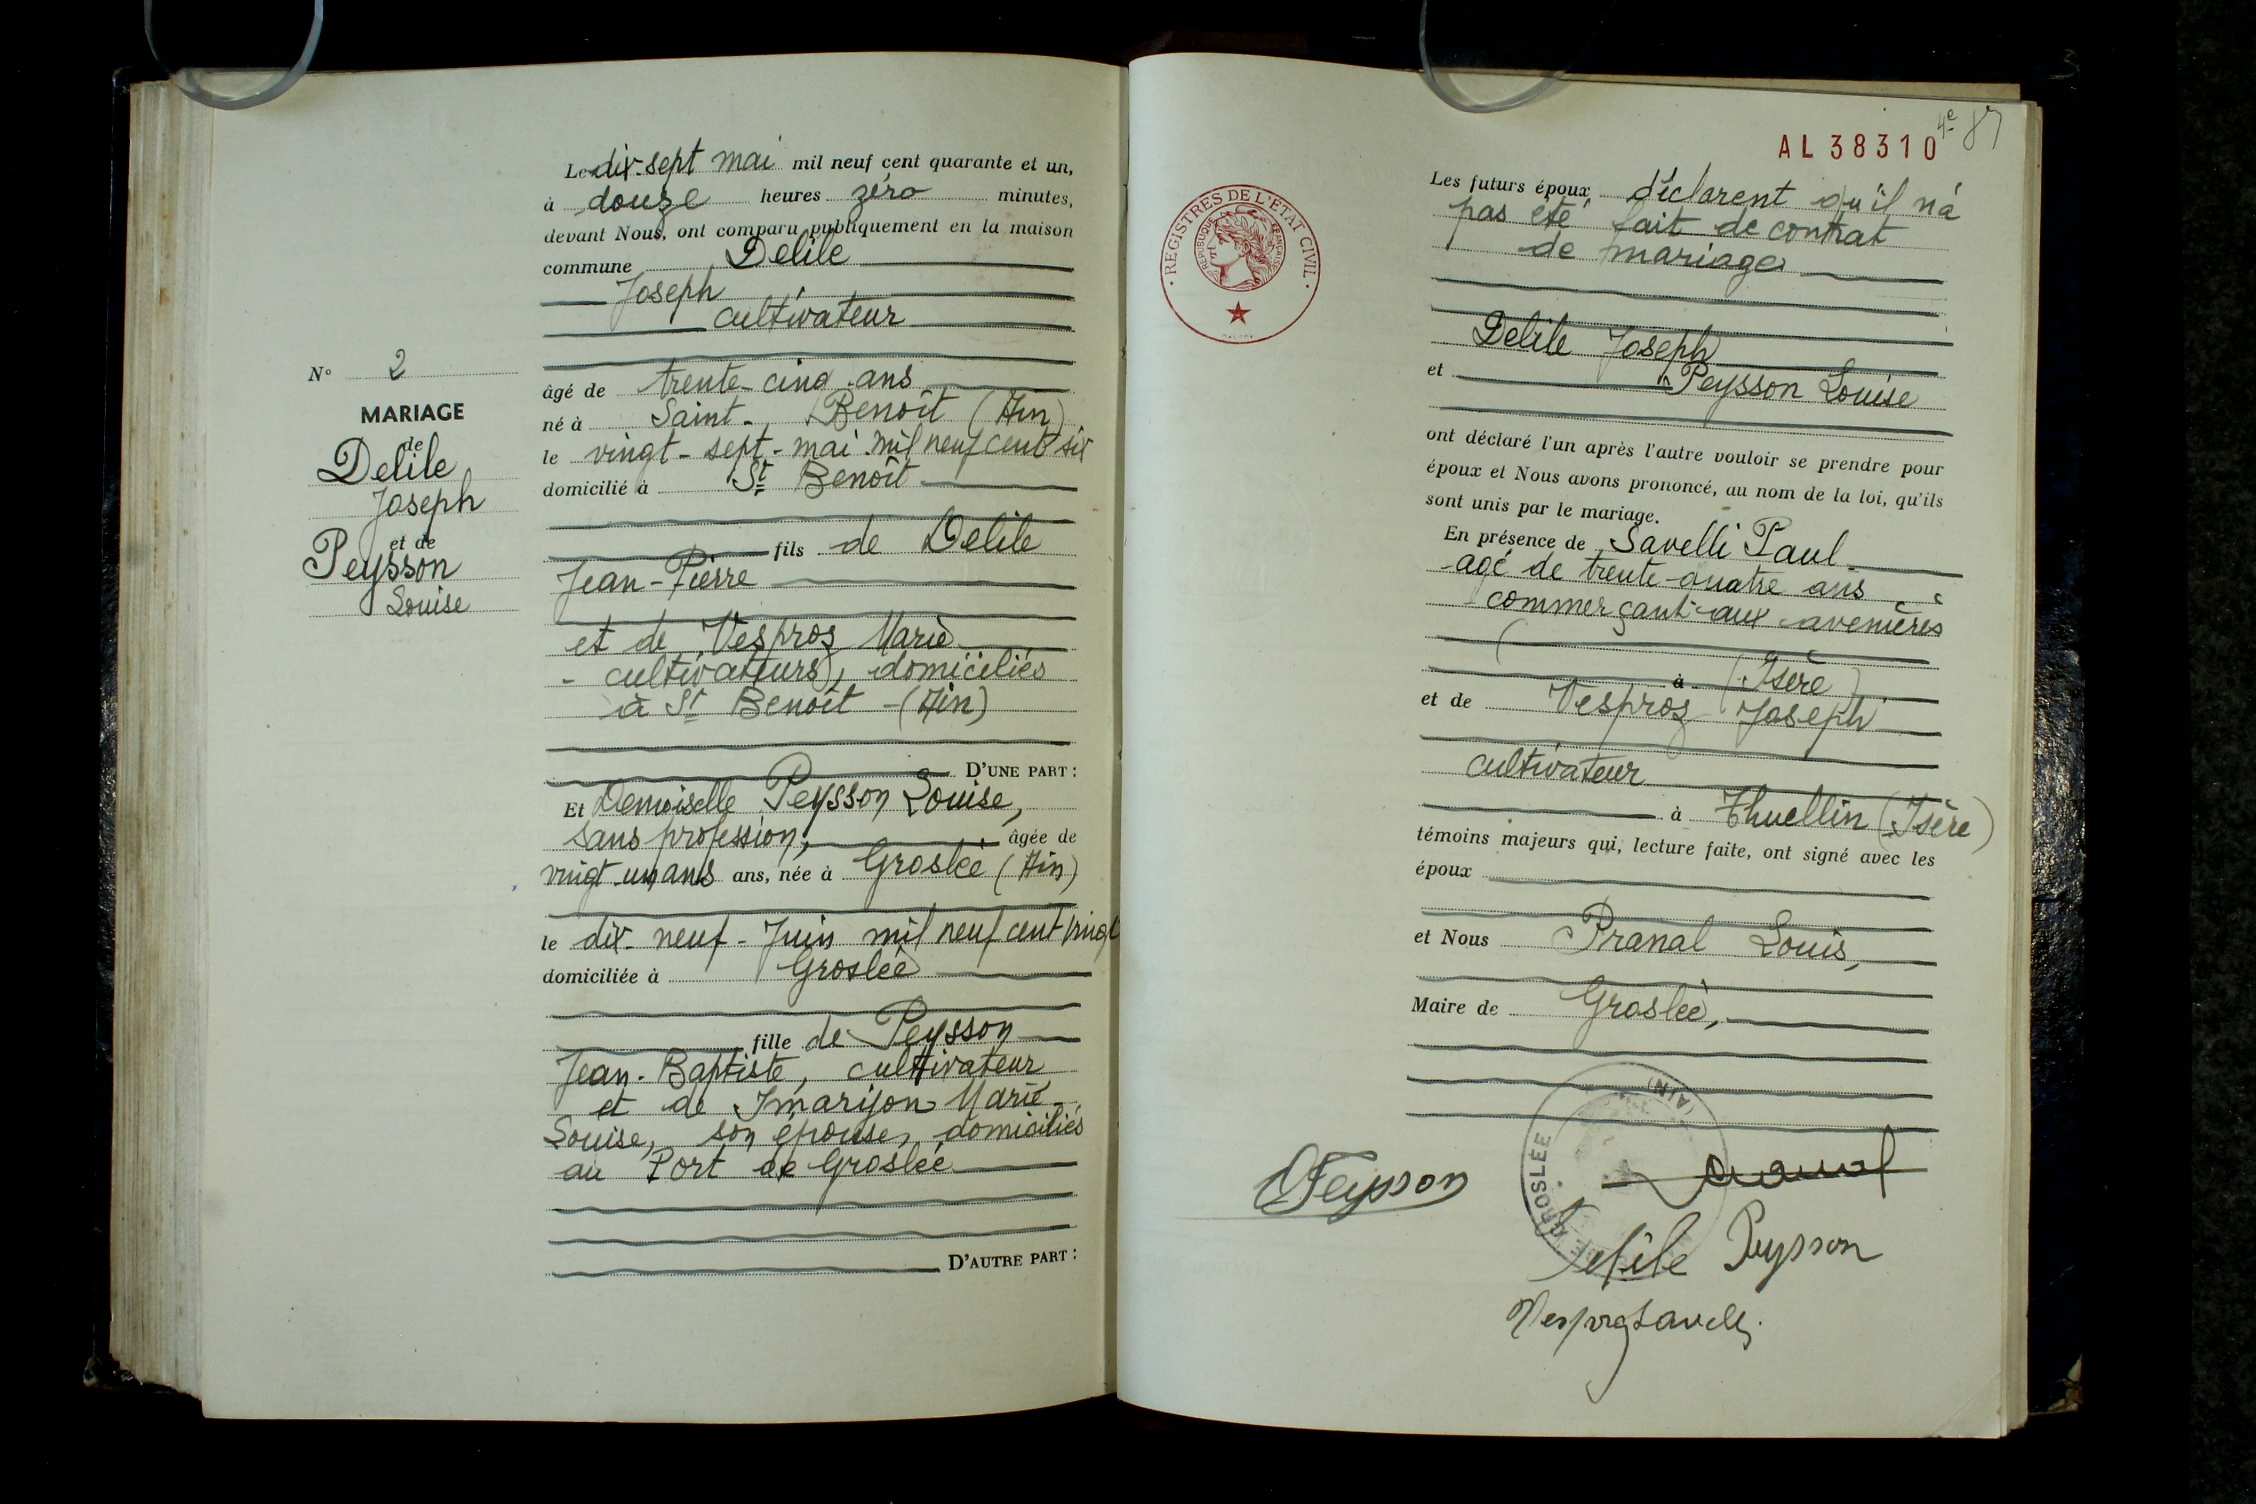 Le dix-sept mai mil neuf cent quarante et un,
à douze heures zéro minutes,
devant Nous, ont comparu publiquement en la maison
commune Delile
Joseph
cultivateur
âgé de trente-cinq ans
né à Saint-Benoît (Ain)
le vingt-sept-mai mil neuf cent six
domicilié à St Benoît
fils de Delile
Jean-Pierre
et de Vesproz Marie
- cultivateurs, domiciliés
à St Benoît - (Ain)
D'UNE PART :
N° 2
MARIAGE
de
Delile
Joseph
et de
Peysson
Louise
Et Demoiselle Peysson Louise,
sans profession, âgée de
vingt-un ans ans, née à Groslée (Ain)
le dix-neuf-Juin mil neuf cent vingt
domiciliée à Groslée
fille de Peysson
Jean-Baptiste, cultivateur
et de Marie-
Louise, son épouse, domiciliés
au Port de Groslée
D'AUTRE PART :
AL38310
4e 87
REGISTRES DE L'ETAT CIVIL
REPUBLIQUE FRANÇAISE
Les futurs époux déclarent qu'il n'a
pas été fait de contrat
de mariage
Delile Joseph
et Peysson Louise
ont déclaré l'un après l'autre vouloir se prendre pour
époux et Nous avons prononcé, au nom de la loi, qu'ils
sont unis par le mariage.
En présence de Savelli Paul
agé de trente-quatre ans
commerçant aux avenières
à (Isère)
et de Vesproz Joseph
cultivateur
à Thuellin (Isère)
témoins majeurs qui, lecture faite, ont signé avec les
époux
et Nous Pranal Louis,
Maire de Groslée,
DE GROSLÉE (AIN)
Peysson
Pranal
Delile Peysson
Vesproz Savelli